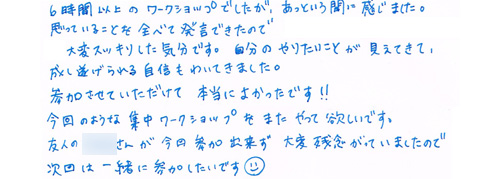 6時間以上のワークショップでしたが、あっという間に感じました。
思っていることを全べて発言できたので
大変スッキリした気分です。自分のやりたいことが見えてきて、
成し遂げられる自信もわいてきました。
参加させていただけて本当によかったです!!
今回のような集中ワークショップをまたやって欲しいです。
友人のさんが今回参加出来ず大変残念がっていましたので
次回は一緒に参加したいです☺